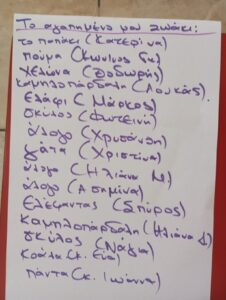 Το αγαπημένο μου ζωάκι:
το παπάκι (Κατερίνα)
πούμα (Κων/νος Γκ)
χελώνα (Θοδωρής)
καμηλοπάρδαλη (Λουκάς).
ελάφι (Μάρκος)
σκύλος (Φωτεινή)
άλογο (Χρυσάνθη)
γάτα (Χριστίνα)
άλογο (Ηλιάνα Μ)
άλογο (Ασημίνα)
Ελέφαντας (Σπύρος)
Καμηλοπάρδαλη (Ηλιάνα Δ)
σκύλος (Νάγια)
Κοάλα (κ. Εύα)
πάντα (κ. Ιωάννα)